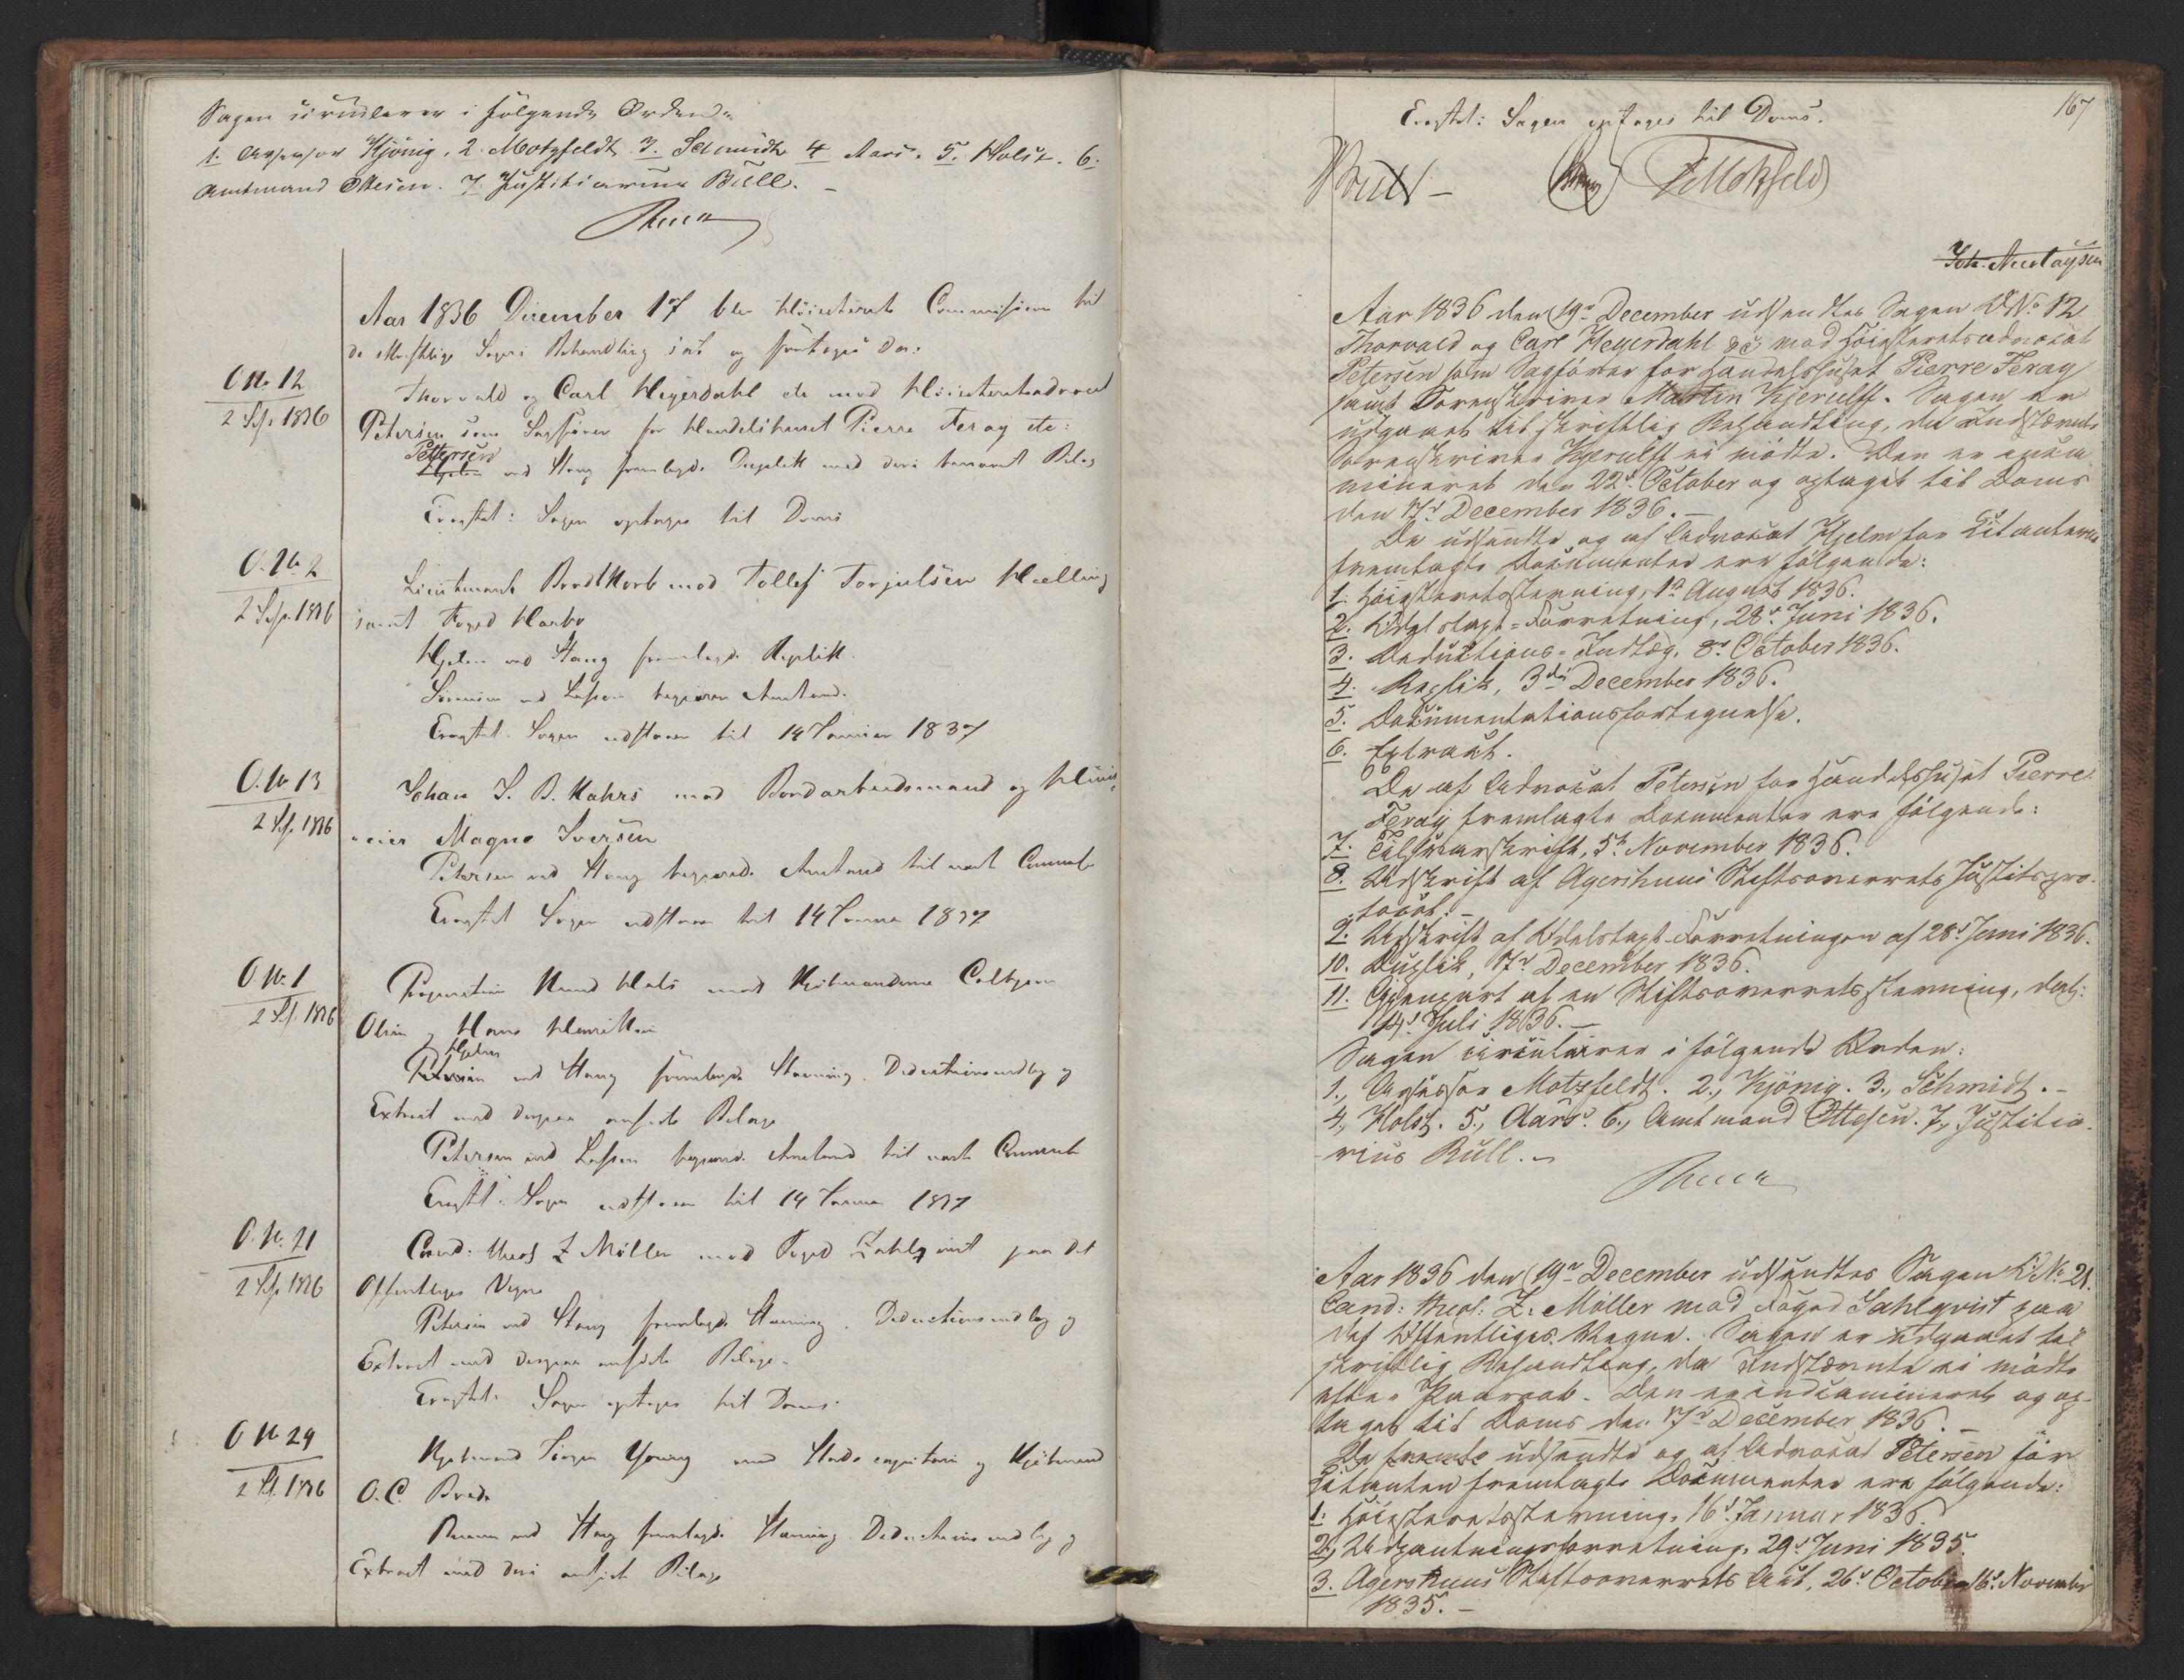 Sagen circulerer i følgende Orden
1. Assessor Kjönig, 2. Motzfeldt 3. Schmidt 4 Aars. 5. Holst. 6.
Amtmand Ottesen. 7 Justitiarius Bull. –
Aar 1836 December 17 blev Höiesterets Commission til
de skriftlige Sagers Behandling sat og foretoges da:
O No 12
2 Sess. 1836
Thorvald og Carl Heyerdahl etc mod Höiesteretsadvocat
Petersen som Sagförer for Handelshuset Pierre Feray etc:
Petersen
Hjelm ved Stang fremlagde Duplik med deri benævnt Bilag
Eragtet: Sagen optages til Doms
O. No 2
2 Sess. 1836
Lieutenant Brodtkorb mod Tollef Torjulsen Hælling
samt Foged Harbo
Hjelm ved Stang fremlagde Replik
Sörensen ved Lassen begjærede Anstand.
Eragtet. Sagen udstaaer til 14 Januar 1837
O. No 13
2 Sess. 1836
Johan S. B. Kahrs mod Bordarbeidsmand og Huus-
eier Magne Iversen
Petersen ved Stang begjærede Anstand til næste
Eragtet Sagen udstaaer til 14 Januar 1837
O No. 1
2 Sess. 1836
Knud Hals mod Kjöbmændene
Olsen og Hans Henriksen
Hjelm
Petersen ved Stang fremlagde Stævning. Deductionsindlæg og
Extract med desuden anförte Bilage
Petersen ved Lassen begjærede Anstand til næste
Eragtet: Sagen udstaaer til 14 Januar 1837
O. No. 21
2 Sess. 1836
Cand: theol Z Möller mod Foged Sahlqvist paa det
Offentliges Vegne
Petersen ved Stang fremlagde Stævning. Deductionsindlæg og
Extract med desuden anförte Bilage.
Eragtet. Sagen optages til Doms.
O No 29
2 Sess. 1836
Kjöbmand Jörgen Young mod og Kjöbmand
O. C. Brede
ved Stang fremlagde Stævning Deductionsindlæg og
Extract med deri anförte Bilage
167
Eragtet: Sagen optages til Doms.
Bull – FMotzfeldt
Aar 1836 den 19de December udsendtes Sagen O No. 12
Thorvald og Carl Heyerdahl &c mod Höiesteretsadvocat
Petersen som Sagförer for Handelshuset Pierre Feray
samt Sorenskriver Martin Kjerulff. Sagen er
udgaaet til skriftlig Behandling, da Indstævnte
Sorenskriver Kjerulff ei mödte. Den er exam-
mineret den 22de October og optaget til Doms
den 17de December 1836. –
De udsendte og af Advocat Hjelm for Citanterne
fremlagte Documenter ere fölgende:
1. Höiesteretsstævning, 1ste August 1836.
2. Odelstaxt-Forretning, 28de Juni 1836.
3. Deductions-Indlæg, 8de October 1836.
4. Replik, 3die December 1836.
5. Documentationsfortegnelse.
6. Extract.
De af Advocat Petersen for Handelshuset Pierre
Feray fremlagte Documenter ere fölgende:
7. Tilsvarskrift, 5te November 1836.
8. Udskrift af Agershuus Stiftsoverrets Justitspro-
tocol. –
9. Udskrift af Odelstaxt-Forretningen af 28de Juni 1836.
10. Duplik, 17de December 1836.
11. Gjenpart af en Stiftsoverretsstævning, dat:
14de Juli 1836. –
Sagen circulerer i fölgende Orden:
1., Assessor Motzfeldt. 2., Kjönig. 3., Schmidt. –
4, Holst. 5., Aars. 6., Amtmand Ottesen. 7, Justitia-
rius Bull. –
Aar 1836 den 19de December udsendtes Sagen O No 21.
Cand: theol: Z. Möller mod Foged Sahlqvist paa
det Offentliges Vegne. Sagen er udgaaet til
skriftlig Behandling, da Indstævnte ei mödte
efter Paaraab. Den er indcamineret og op-
taget til Doms den 17de December 1836. –
De udsendte og af Advocat Petersen for
Citanten fremlagte Documenter ere fölgende:
1. Höiesteretsstævning, 16de Januar 1836.
2., Udpantningsforretning, 29de Juni 1835.
3. Agershuus Stiftsoverrets Act, 26de October, 16de November
1835. –